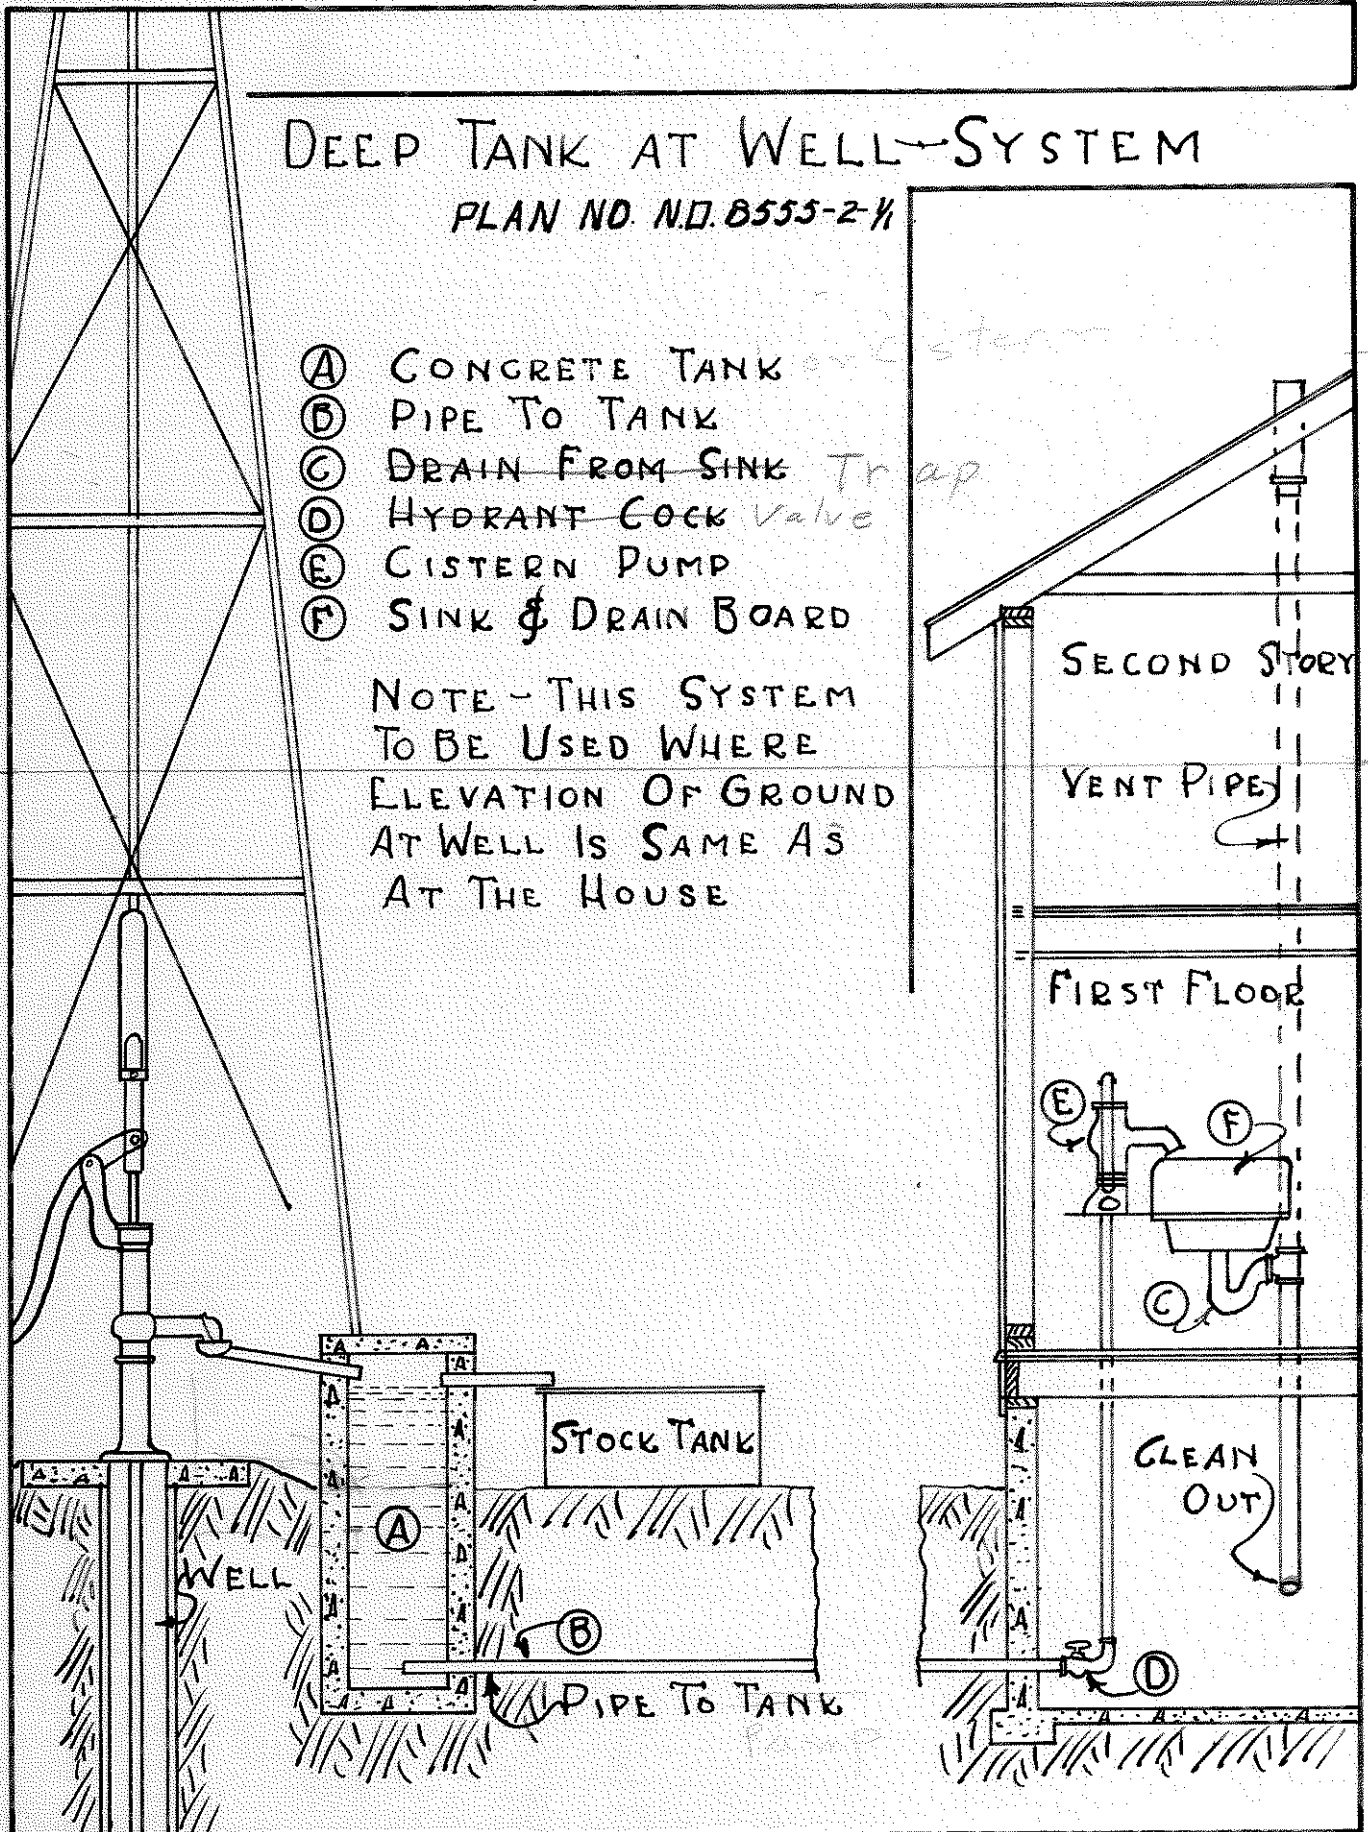 DEEP TANK AT WELL-SYSTEM
PLAN NO. N.D. 8555-2-1/1
A CONCRETE TANK or Cistern
B PIPE TO TANK
C DRAIN FROM SINK Trap
D HYDRANT COCK Valve
E CISTERN PUMP
F SINK & DRAIN BOARD
NOTE - THIS SYSTEM
TO BE USED WHERE
ELEVATION OF GROUND
AT WELL IS SAME AS
AT THE HOUSE
SECOND STORY
VENT PIPE
FIRST FLOOR
E
F
C
STOCK TANK
CLEAN
OUT
A
WELL
B
D
PIPE TO TANK
Pump